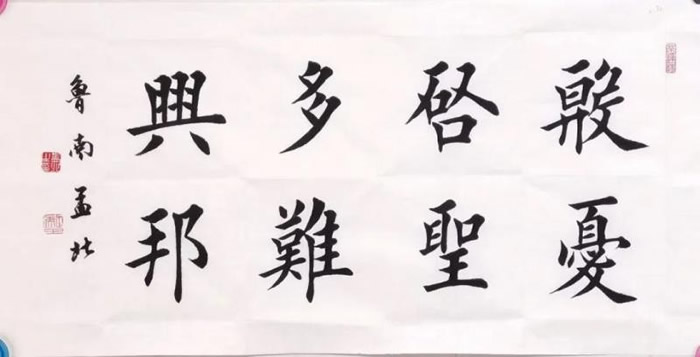 殷憂
啓聖
多難
興邦
魯南孟北